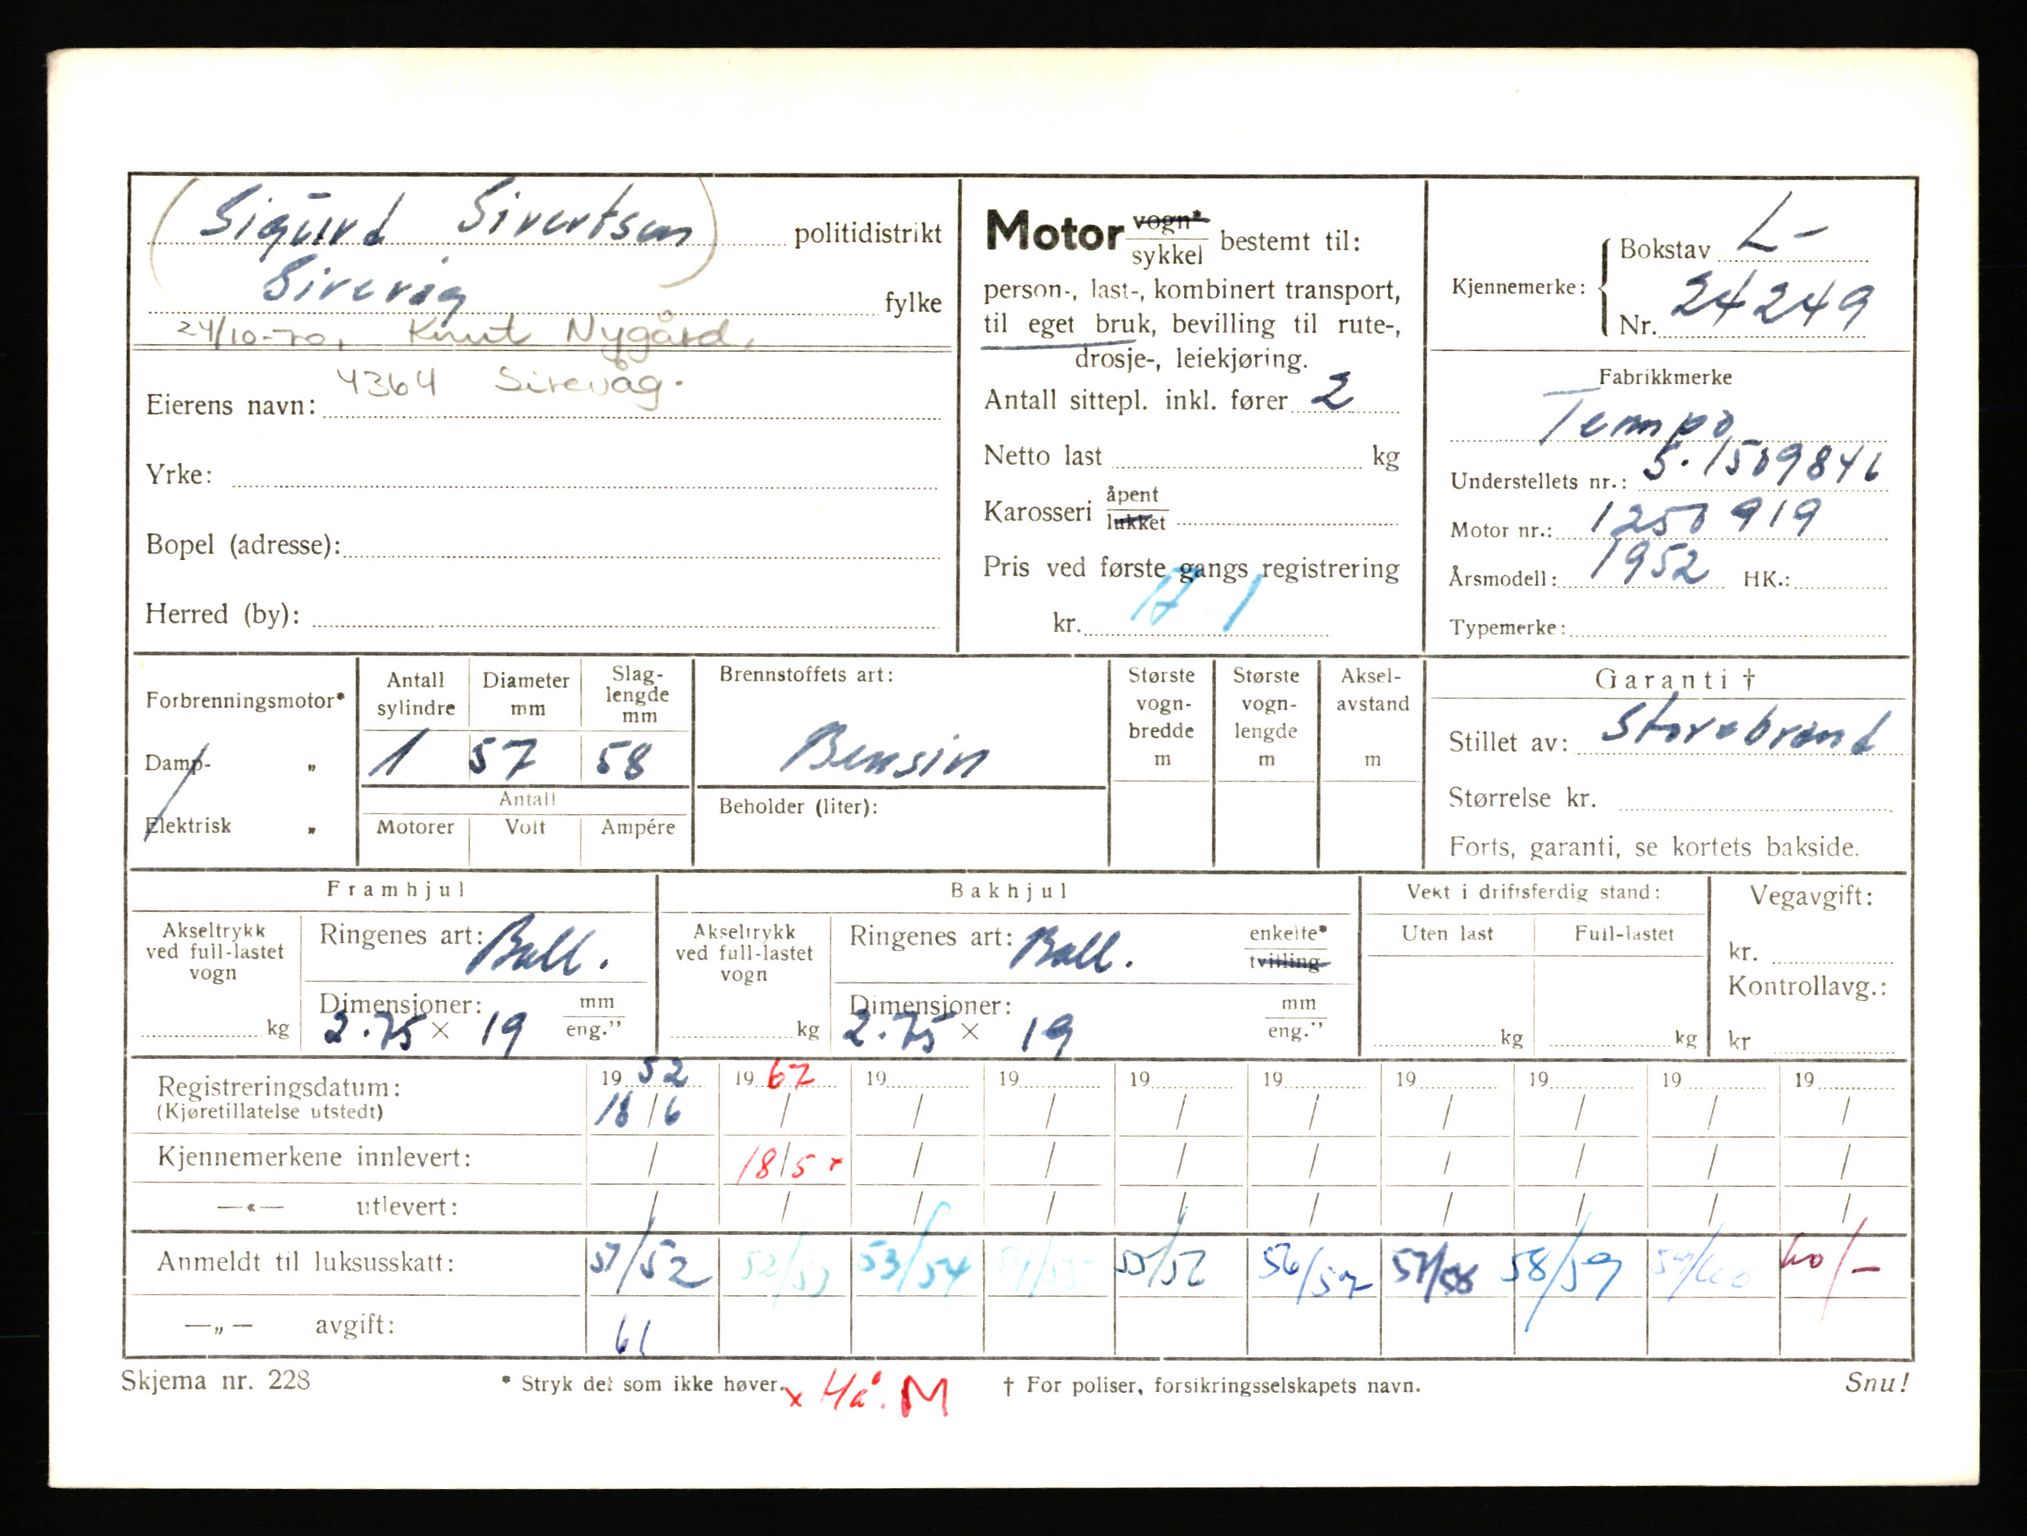 (Sigurd Sivertsen) politidistrikt
Sirevåg fylke
24/10-70, Knut Nygård,
4364 Sirevåg.
Eierens navn:
Yrke:
Bopel (adresse):
Herred (by):
Motor vogn* / sykkel bestemt til:
person-, last-, kombinert transport,
til eget bruk, bevilling til rute-,
drosje-, leiekjøring.
Antall sittepl. inkl. fører 2
Netto last kg
Karosseri åpent / lukket
Pris ved første gangs registrering
kr.
Kjennemerke: Bokstav L-
Nr. 24249
Fabrikkmerke
Tempo
Understellets nr.: 5.1509846
Motor nr.: 1250919
Årsmodell: 1952 HK.:
Typemerke:
Forbrenningsmotor*
Damp- „
Elektrisk „
Antall sylindre Diameter mm Slaglengde mm
1 57 58
Antall
Motorer Volt Ampére
Brennstoffets art:
Bensin
Beholder (liter):
Største vogn-bredde m
Største vogn-lengde m
Aksel-avstand m
Garanti †
Stillet av: Storebrand
Størrelse kr.
Forts, garanti, se kortets bakside.
Framhjul
Akseltrykk ved full-lastet vogn kg
Ringenes art: Ball.
Dimensjoner: mm / eng."
2.75 × 19
Bakhjul
Akseltrykk ved full-lastet vogn kg
Ringenes art: Ball. enkelte* / tvilling
Dimensjoner: mm / eng."
2.75 × 19
Vekt i driftsferdig stand:
Uten last Full-lastet
kg kg
Vegavgift:
kr.
Kontrollavg.:
kr
Registreringsdatum: 19 52 19 67 19 19 19 19 19 19 19 19
(Kjøretillatelse utstedt) 18/6 / / / / / / / / /
Kjennemerkene innlevert: / 18/5 x / / / / / / / /
—«— utlevert: / / / / / / / / / /
Anmeldt til luksusskatt: 51/52 52/53 53/54 54/55 55/56 56/57 57/58 58/59 59/60 60/-
—„— avgift: 61
Skjema nr. 228 * Stryk det som ikke høver. x Hå. M † For poliser, forsikringsselskapets navn. Snu!